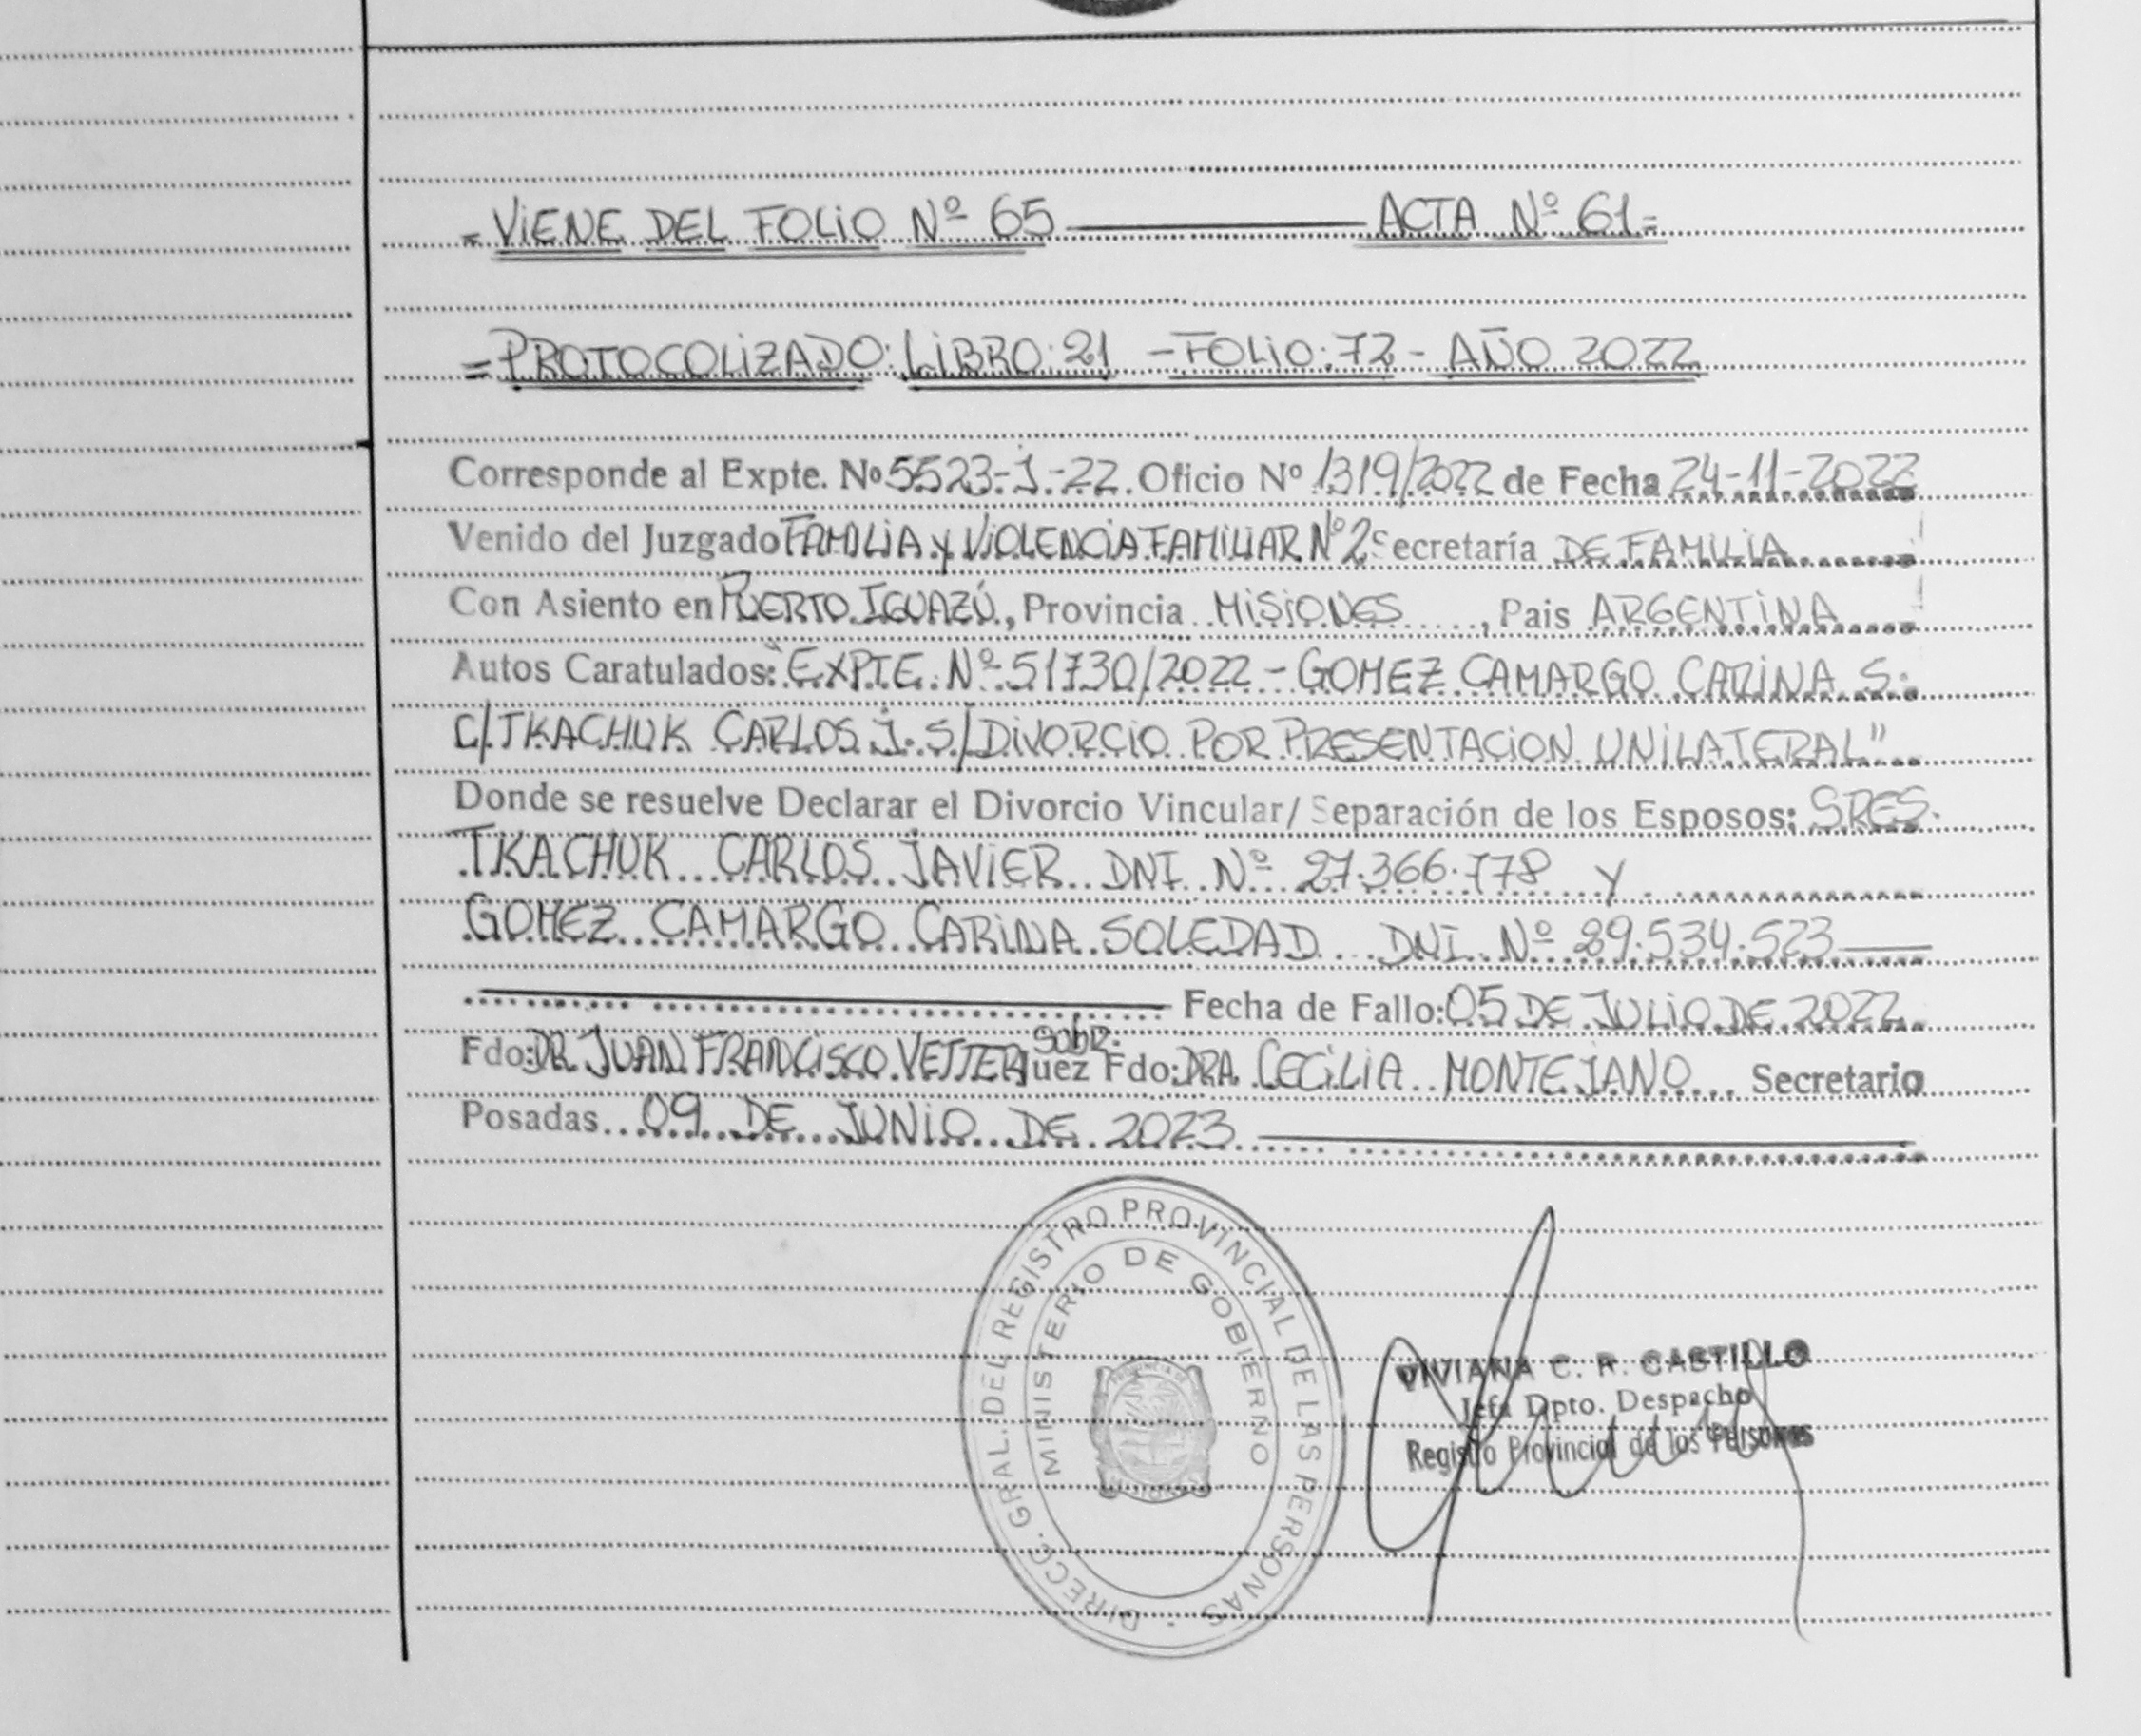 = VIENE DEL FOLIO Nº 65 ———— ACTA Nº 61=
= PROTOCOLIZADO: LIBRO: 21 - FOLIO: 72 - AÑO 2022
Corresponde al Expte. Nº 5523-J-22. Oficio Nº 1319/2022 de Fecha 24-11-2022
Venido del Juzgado FAMILIA y VIOLENCIA FAMILIAR Nº2 Secretaría DE FAMILIA
Con Asiento en PUERTO IGUAZÚ, Provincia MISIONES, Pais ARGENTINA
Autos Caratulados: "EXPTE. Nº 51730/2022 - GOMEZ CAMARGO CARINA S.
C/TKACHUK CARLOS J. S/DIVORCIO POR PRESENTACION UNILATERAL"
Donde se resuelve Declarar el Divorcio Vincular/ Separación de los Esposos: SRES.
TKACHUK CARLOS JAVIER DNI Nº 27.366.778 y
GOMEZ CAMARGO CARINA SOLEDAD DNI Nº 29.534.523
Fecha de Fallo: 05 DE JULIO DE 2022
Fdo: DR. JUAN FRANCISCO VETTER Juez Fdo: DRA. CECILIA MONTEJANO Secretario
Posadas 09 DE JUNIO DE 2023
DIRECC. GRAL. DEL REGISTRO PROVINCIAL DE LAS PERSONAS
MINISTERIO DE GOBIERNO
VIVIANA C. R. CASTILLO
Jefa Dpto. Despacho
Registro Provincial de las Personas